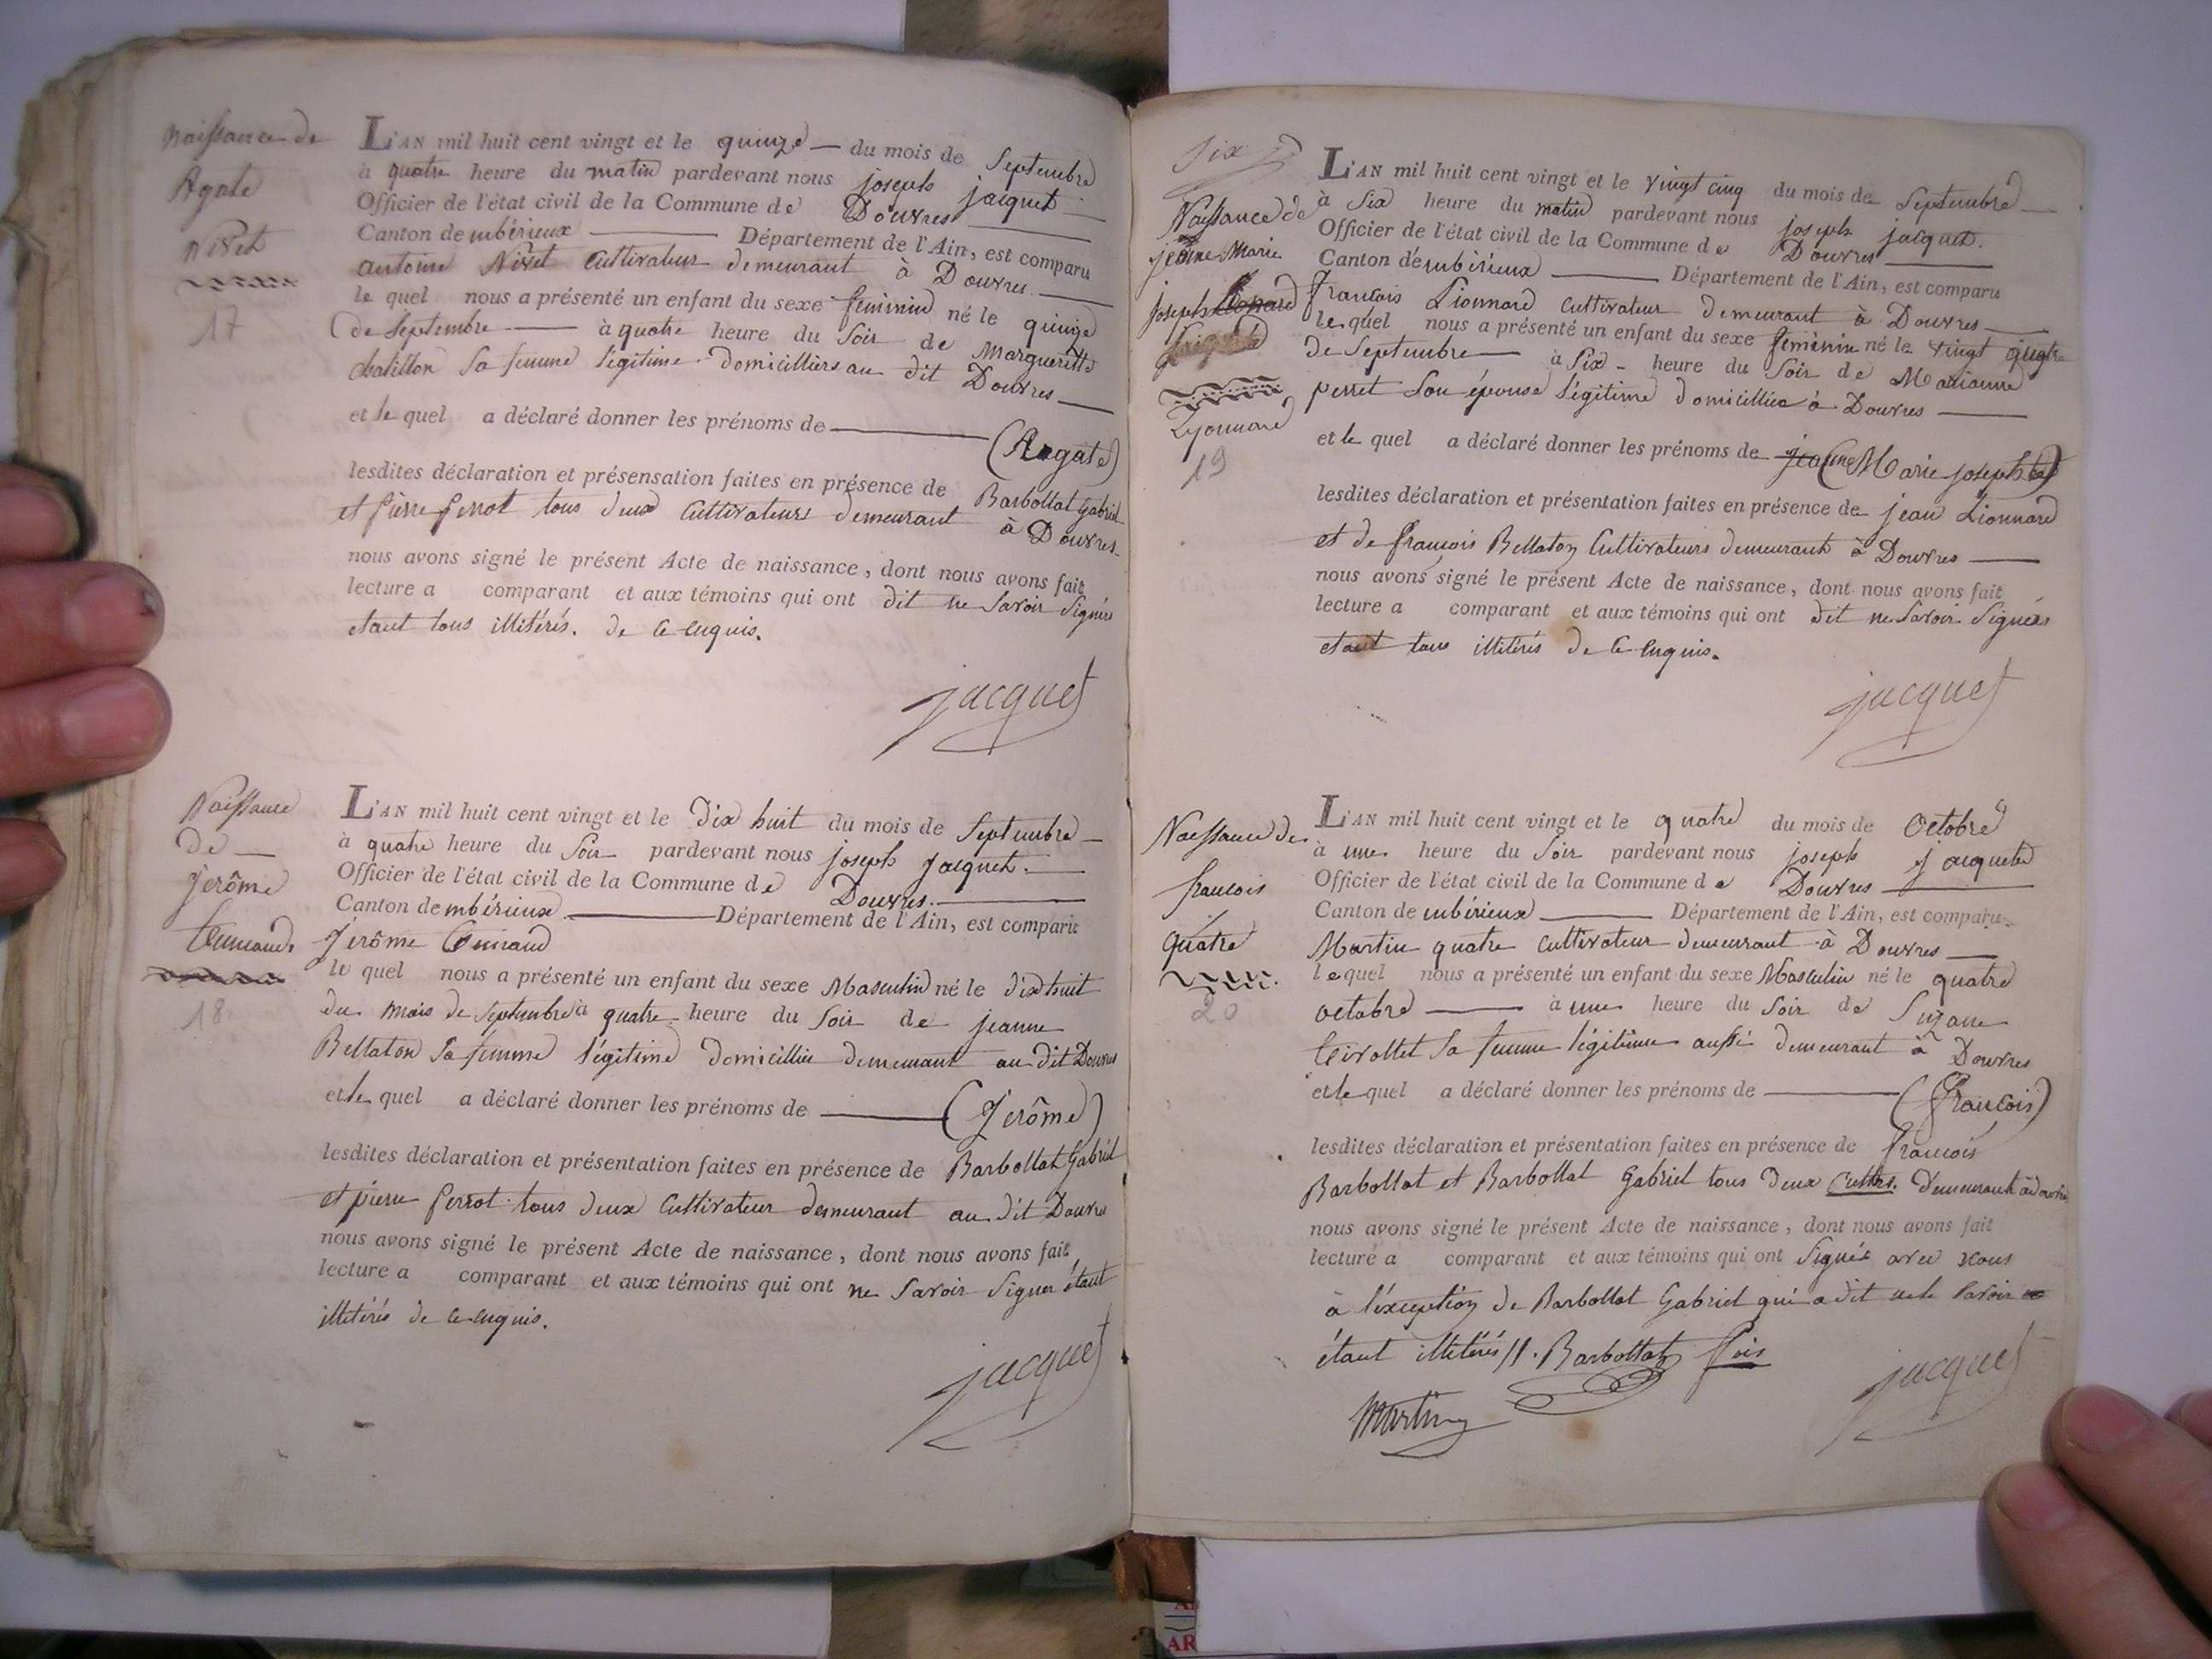 Naissance de
Agate
Nivet
17
L'AN mil huit cent vingt et le quinze du mois de Septembre
à quatre heure du matin pardevant nous joseph jacquet
Officier de l'état civil de la Commune de Douvres
Canton de mbérieux Département de l'Ain, est comparu
antoine Nivet Cultivateur demeurant à Douvres
le quel nous a présenté un enfant du sexe féminin né le quinze
de Septembre à quatre heure du Soir de Margueritte
chatillon Sa femme légitime domicilliers au dit Douvres
et le quel a déclaré donner les prénoms de (Aagate)
lesdites déclaration et présensation faites en présence de Barbollat Gabriel
et pierre ferrot tous deux Cultivateurs demeurant à Douvres
nous avons signé le présent Acte de naissance, dont nous avons fait
lecture a comparant et aux témoins qui ont dit ne Savoir Signés
etant tous illitérés. de Ce enquis.
jacquet
Naissance
de
Jerôme
18
L'AN mil huit cent vingt et le Dix huit du mois de Septembre
à quatre heure du Soir pardevant nous joseph jacquet.
Officier de l'état civil de la Commune de Douvres.
Canton de mbérieux Département de l'Ain, est comparu
Jerôme
le quel nous a présenté un enfant du sexe Masculin né le dixhuit
du mois de Septembre à quatre heure du Soir de jeanne
Bellaton Sa femme légitime domicilliée demeurant au dit Douvres
et le quel a déclaré donner les prénoms de (Jerôme)
lesdites déclaration et présentation faites en présence de Barbollat Gabriel
et pierre ferrot tous deux Cultivateur demeurant au dit Douvres
nous avons signé le présent Acte de naissance, dont nous avons fait
lecture a comparant et aux témoins qui ont ne Savoir Signer étant
illitérés de Ce enquis.
jacquet
Six
Naissance de
jeanne Marie
joseph Lionnard
Lyonnard
19
L'AN mil huit cent vingt et le vingt cinq du mois de Septembre
à Six heure du matin pardevant nous joseph jacquet.
Officier de l'état civil de la Commune de Douvres
Canton d'embérieux Département de l'Ain, est comparu
francois Lionnard cultivateur demeurant à Douvres
le quel nous a présenté un enfant du sexe féminin né le vingt quatre
de Septembre à Six heure du Soir de Marianne
perret Son épouse légitime domicilliée à Douvres
et le quel a déclaré donner les prénoms de jea(nne Marie josephte)
lesdites déclaration et présentation faites en présence de jean Lionnard
et de francois Bellaton Cultivateurs demeurant à Douvres
nous avons signé le présent Acte de naissance, dont nous avons fait
lecture a comparant et aux témoins qui ont dit ne Savoir Signés
etant tous illitérés de Ce enquis.
jacquet
Naissance de
francois
quatre
20
L'AN mil huit cent vingt et le quatre du mois de Octobre
à une heure du Soir pardevant nous joseph jacquet
Officier de l'état civil de la Commune de Douvres
Canton de mbérieux Département de l'Ain, est comparu
Martin quatre cultivateur demeurant à Douvres
le quel nous a présenté un enfant du sexe Masculin né le quatre
octobre à une heure du Soir de Suzane
Sa femme légitime aussi demeurant à Douvres
et le quel a déclaré donner les prénoms de (francois)
lesdites déclaration et présentation faites en présence de francois
Barbollat et Barbollat Gabriel tous deux Cultrs. demeurant à douvres
nous avons signé le présent Acte de naissance, dont nous avons fait
lecture a comparant et aux témoins qui ont Signés avec nous
à l'éxception de Barbollat Gabriel qui a dit ne le Savoir
étant illitérés //. Barbollat fois
Martin
jacquet
AR